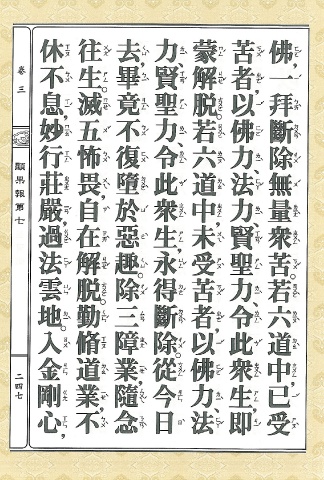 佛，一拜斷除無量衆苦。若六道中已受
苦者，以佛力、法力、賢聖力，令此衆生，即
蒙解脫。若六道中，未受苦者，以佛力、法
力、賢聖力，令此衆生，永得斷除。從今日
去，畢竟不復墮於惡趣。除三障業，隨念
往生。滅五怖畏，自在解脫。勤脩道業，不
休不息。妙行莊嚴，過法雲地，入金剛心，
卷三
顯果報第七
二四七